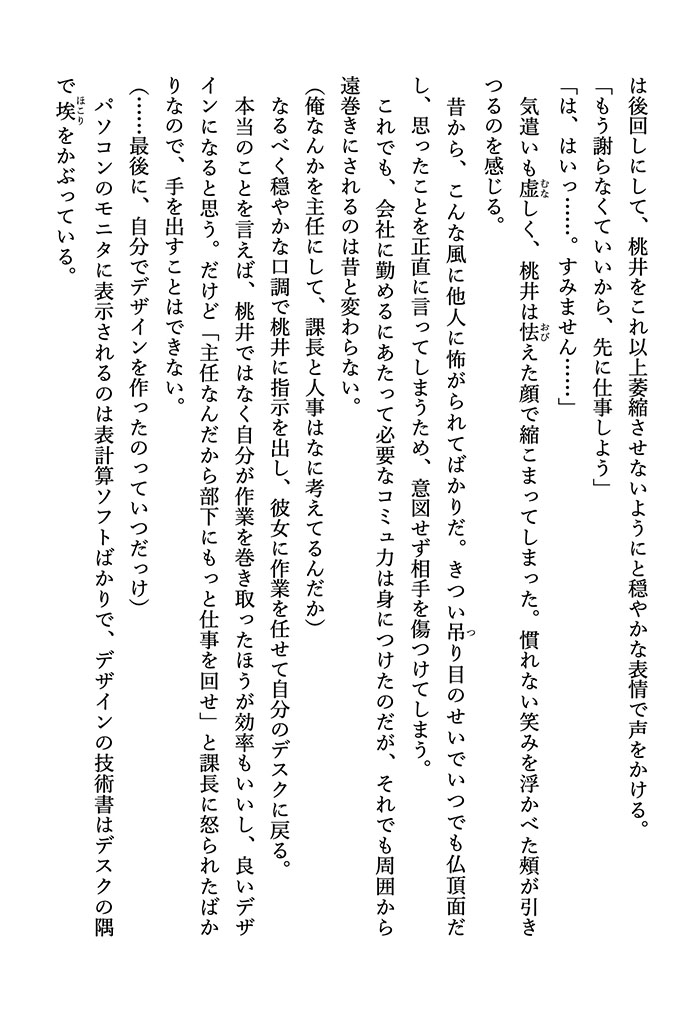 は後回しにして、桃井をこれ以上萎縮させないようにと穏やかな表情で声をかける。
「もう謝らなくていいから、先に仕事しよう」
「は、はいっ……。すみません……」
気遣いも虚しく、桃井は怯えた顔で縮こまってしまった。慣れない笑みを浮かべた頰が引き
つるのを感じる。
昔から、こんな風に他人に怖がられてばかりだ。きつい吊り目のせいでいつでも仏頂面だ
し、思ったことを正直に言ってしまうため、意図せず相手を傷つけてしまう。
これでも、会社に勤めるにあたって必要なコミュ力は身につけたのだが、それでも周囲から
遠巻きにされるのは昔と変わらない。
(俺なんかを主任にして、課長と人事はなに考えてるんだか)
なるべく穏やかな口調で桃井に指示を出し、彼女に作業を任せて自分のデスクに戻る。
本当のことを言えば、桃井ではなく自分が作業を巻き取ったほうが効率もいいし、良いデザ
インになると思う。だけど「主任なんだから部下にもっと仕事を回せ」と課長に怒られたばか
りなので、手を出すことはできない。
(……最後に、自分でデザインを作ったのっていつだっけ)
パソコンのモニタに表示されるのは表計算ソフトばかりで、デザインの技術書はデスクの隅
で埃をかぶっている。
むな
おび
つ
ほこり